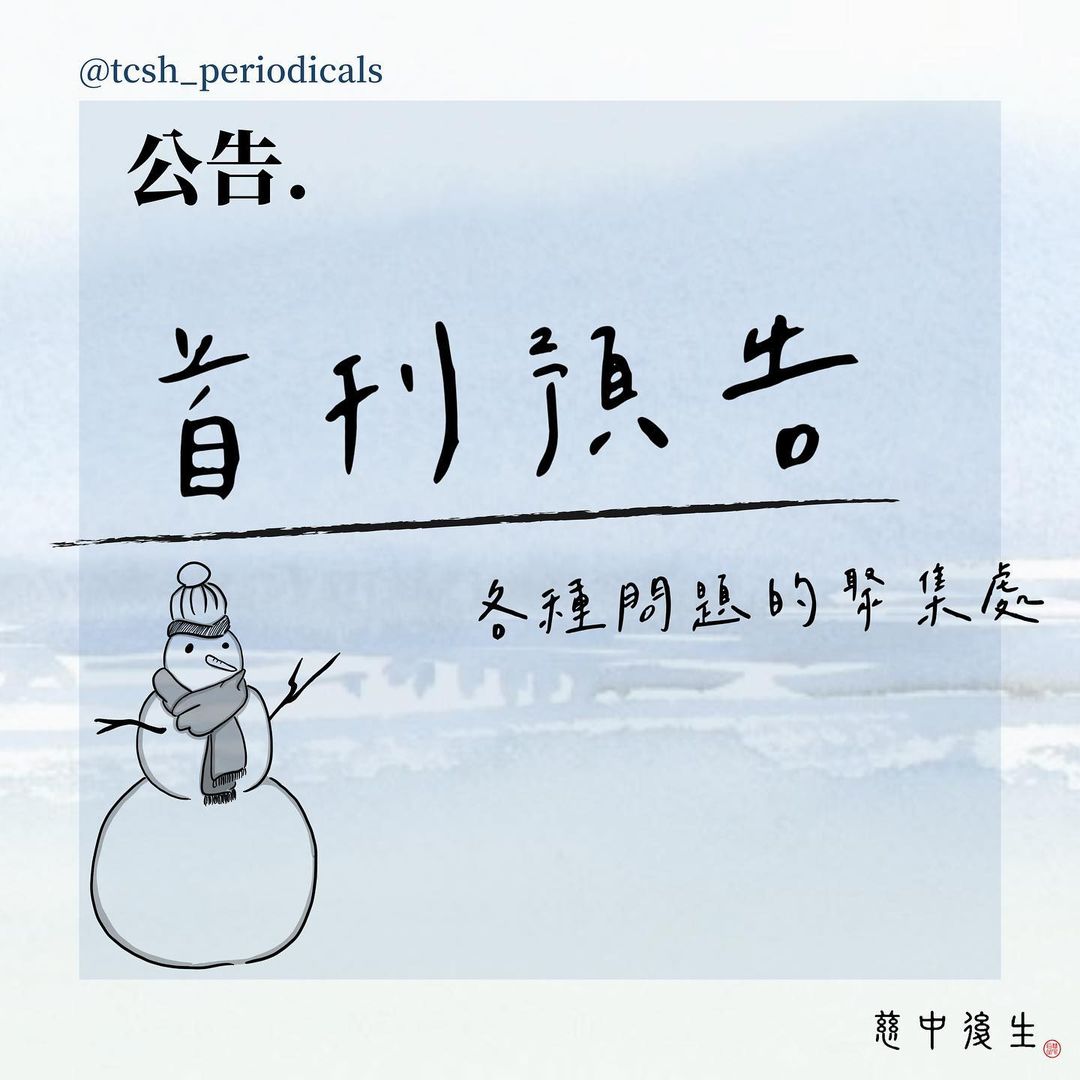 @tcsh_periodicals
公告.
首刊預告
各種問題的聚集處
慈中後生